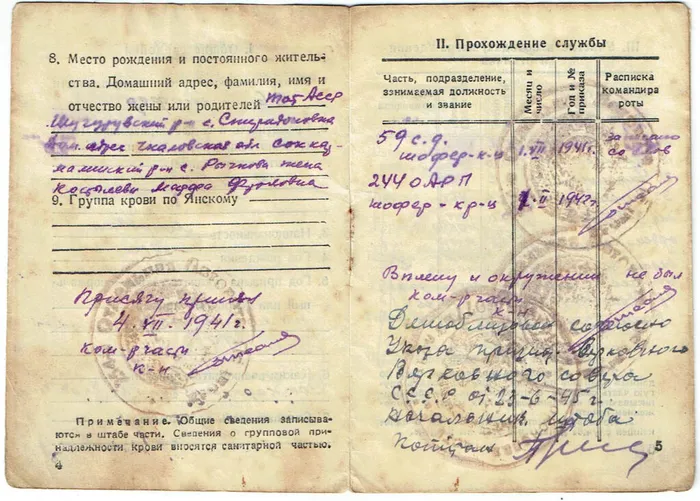 8. Место рождения и постоянного житель-
ства. Домашний адрес, фамилия, имя и
отчество жены или родителей Тат АССР
Шугуровский р-н с. Спиридоновка
дом. адрес Чкаловская обл Сок
р-н с. жена
Марфа Фроловна
9. Группа крови по Янскому
Присягу принял
4. VII. 1941г.
Ком-р части
к-н
Примечание. Общие сведения записыва-
ются в штабе части. Сведения о групповой при-
надлежности крови вносятся санитарной частью.
4
II. Прохождение службы
Часть, подразделение, занимаемая должность и звание
Месяц и число
Год и № приказа
Расписка командира роты
59 с.д.
шофер-к-ц 1. VII 1941г.
244 ОАРП
шофер-кр-ц II 1942г.
В плену и окружении не был
ком-р части
к-н
Демобилизован согласно
Указа Верховного
Верховного совета
СССР от 23-6-45г.
Начальник штаба
капитан
5